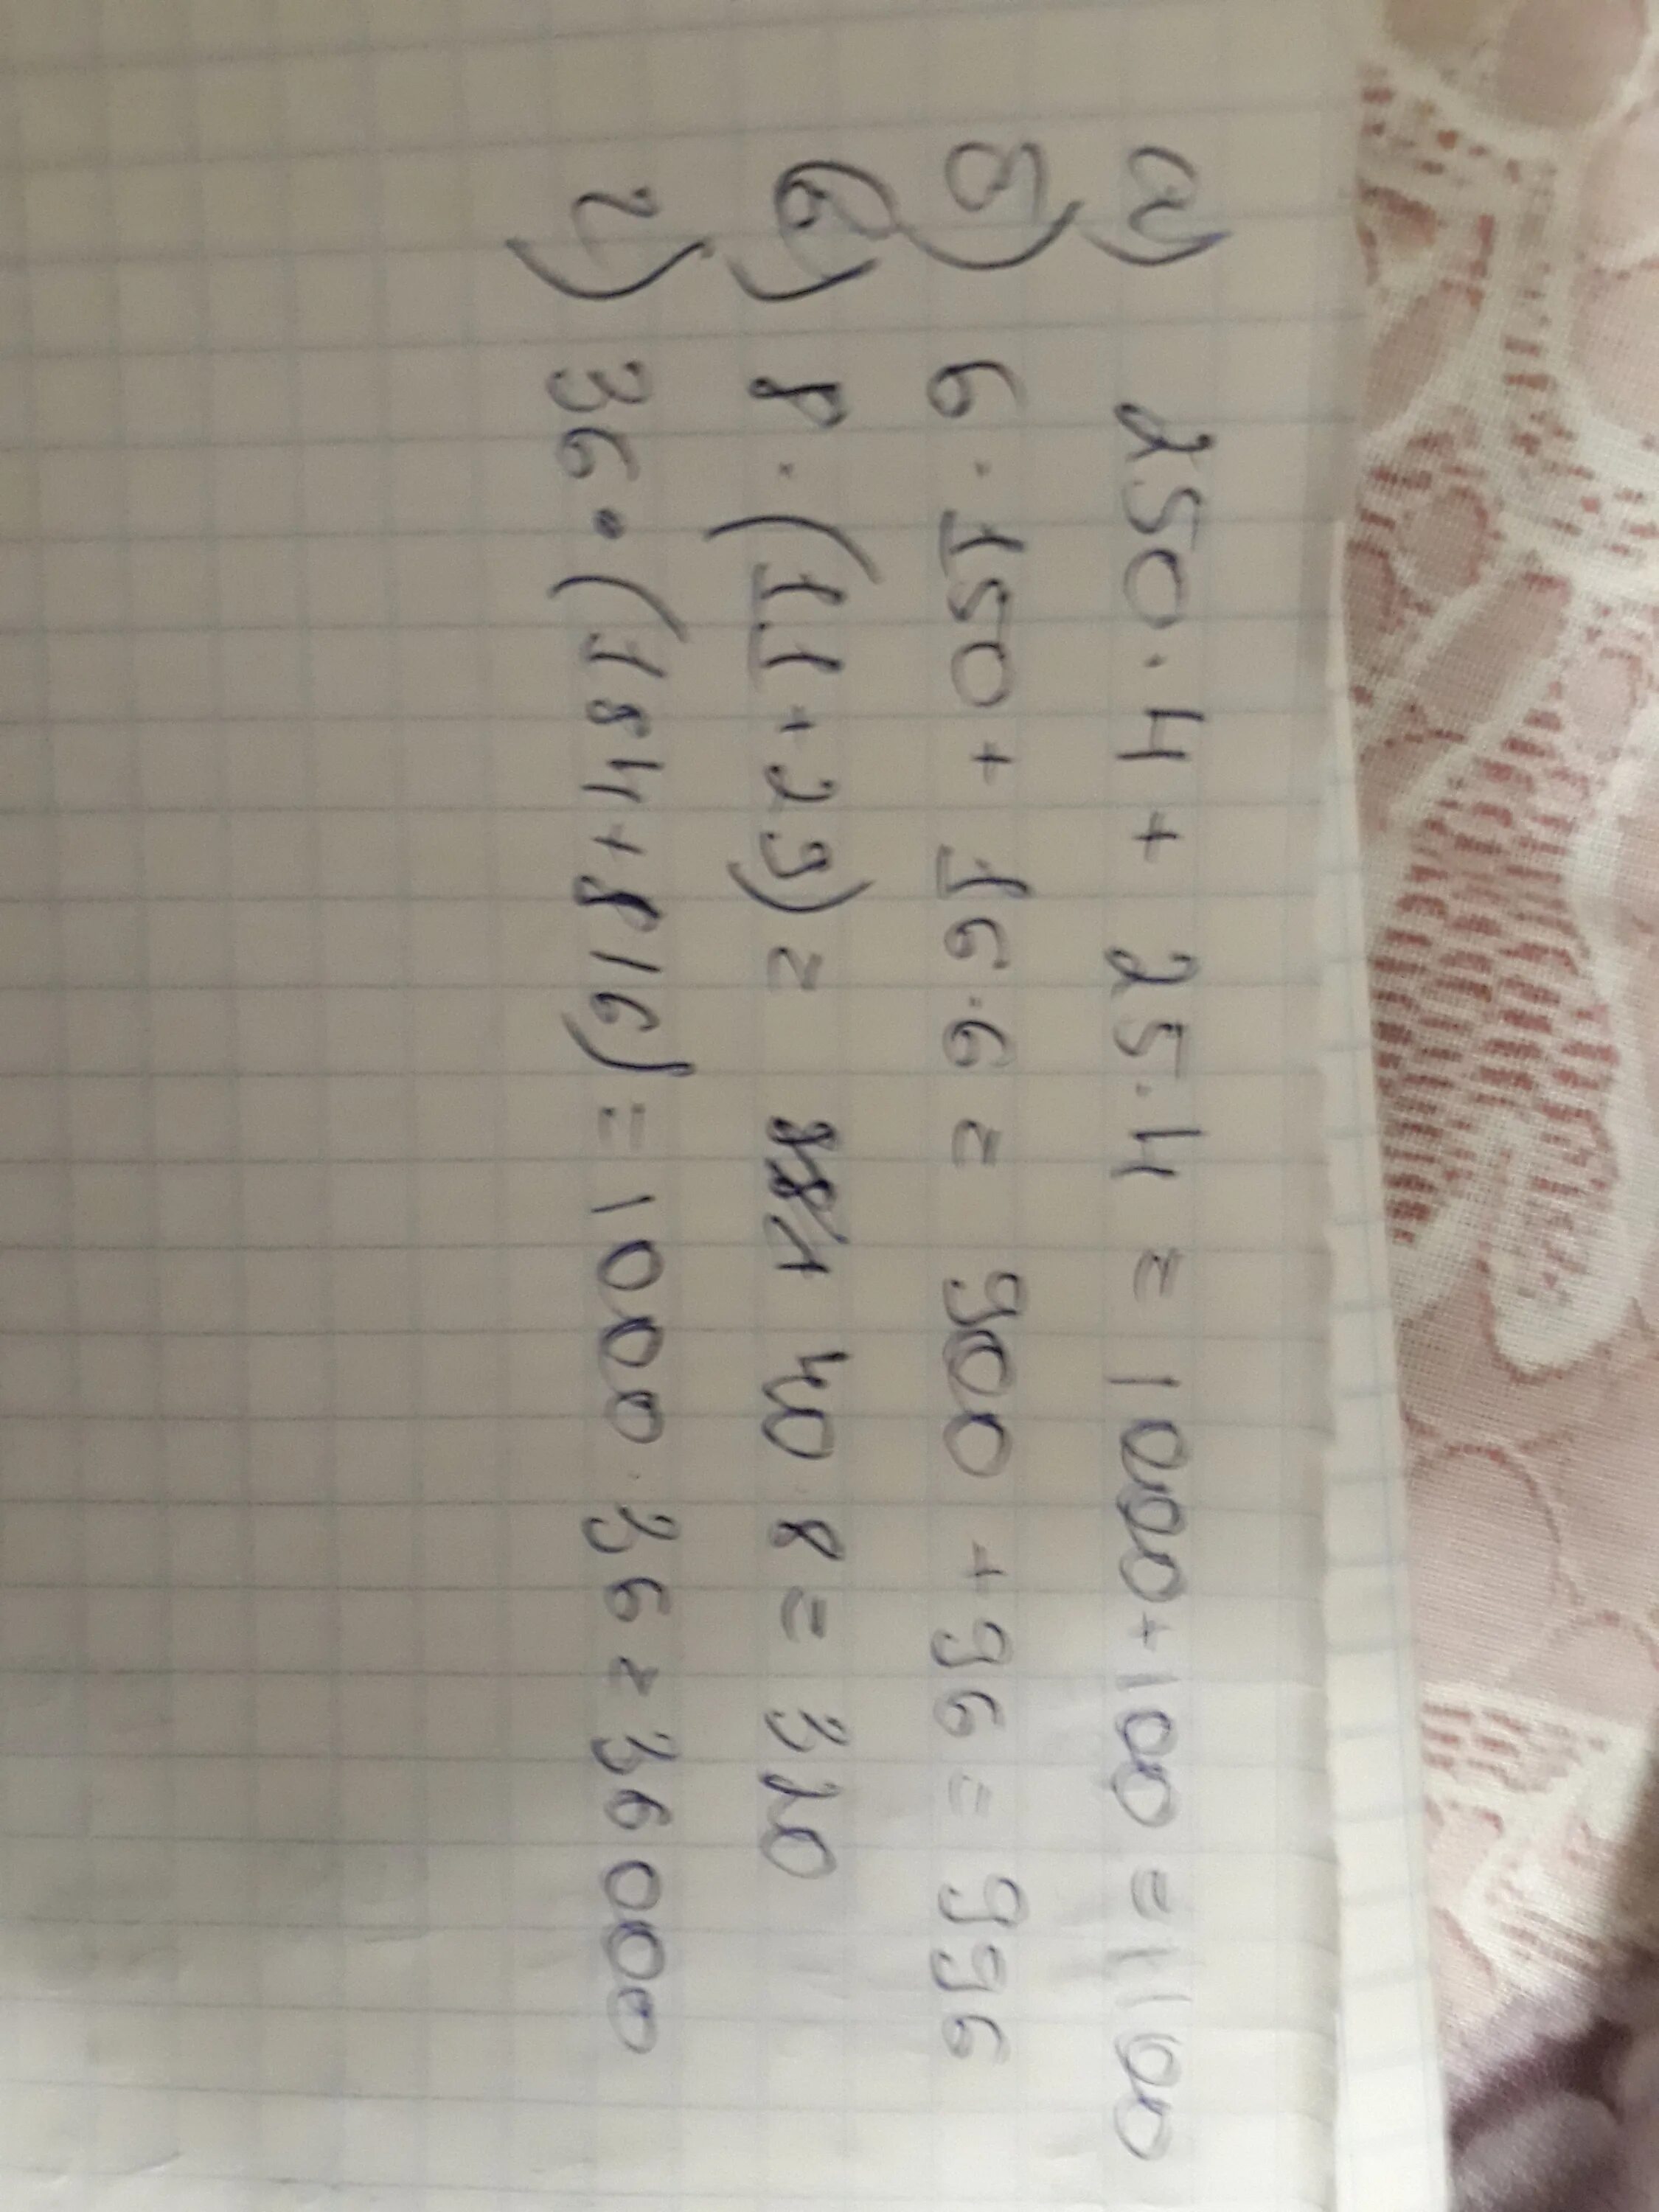 а) 250·4 + 25·4 = 1000+100 = 1100
б) 6·150 + 16·6 = 900 + 96 = 996
в) 8·(11+29) = 40·8 = 320
г) 36·(184+816) = 1000·36 = 36000